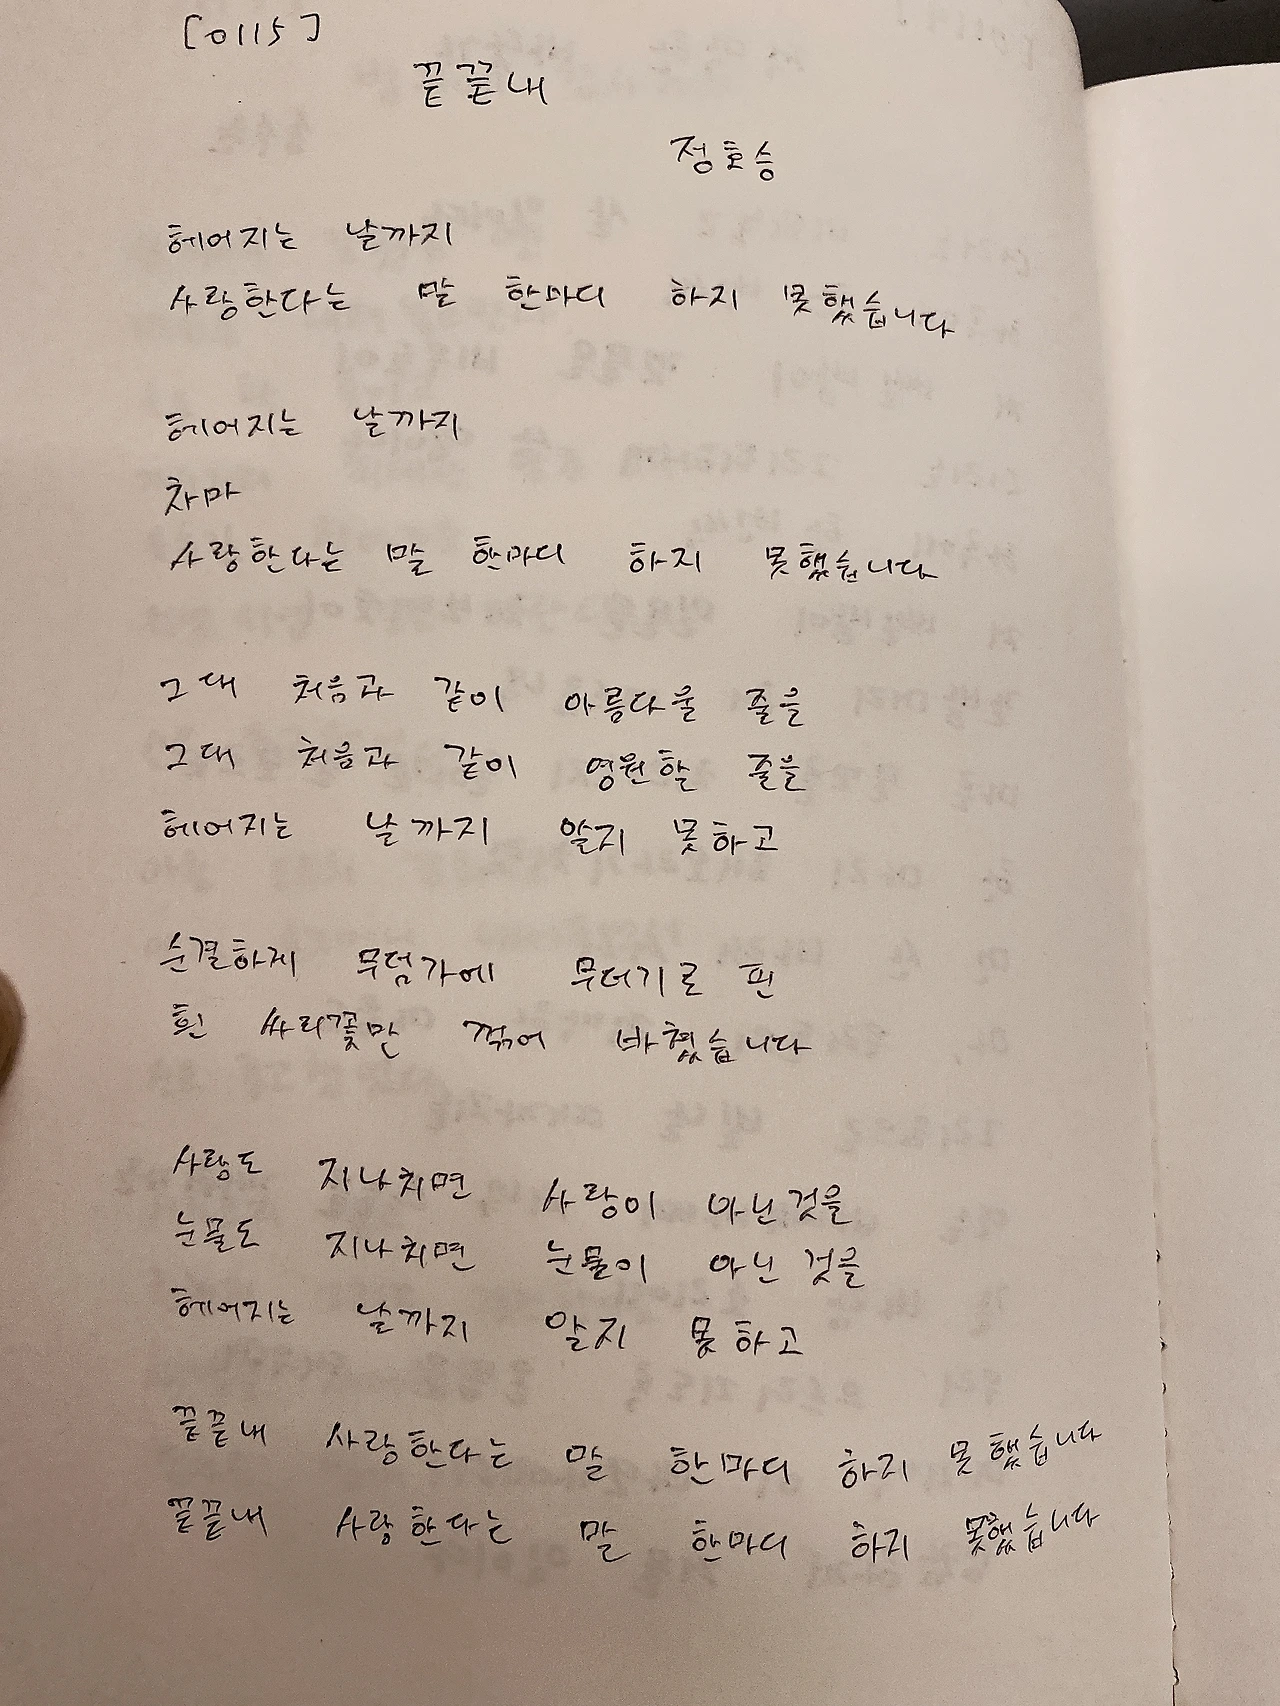 [0115]
끝끝내
정호승
헤어지는 날까지
사랑한다는 말 한마디 하지 못했습니다
헤어지는 날까지
차마
사랑한다는 말 한마디 하지 못했습니다
그대 처음과 같이 아름다울 줄을
그대 처음과 같이 영원할 줄을
헤어지는 날까지 알지 못하고
순결하게 무덤가에 무더기로 핀
흰 싸리꽃만 꺾어 바쳤습니다
사랑도 지나치면 사랑이 아닌것을
눈물도 지나치면 눈물이 아닌 것을
헤어지는 날까지 알지 못하고
끝끝내 사랑한다는 말 한마디 하지 못했습니다
끝끝내 사랑한다는 말 한마디 하지 못했습니다